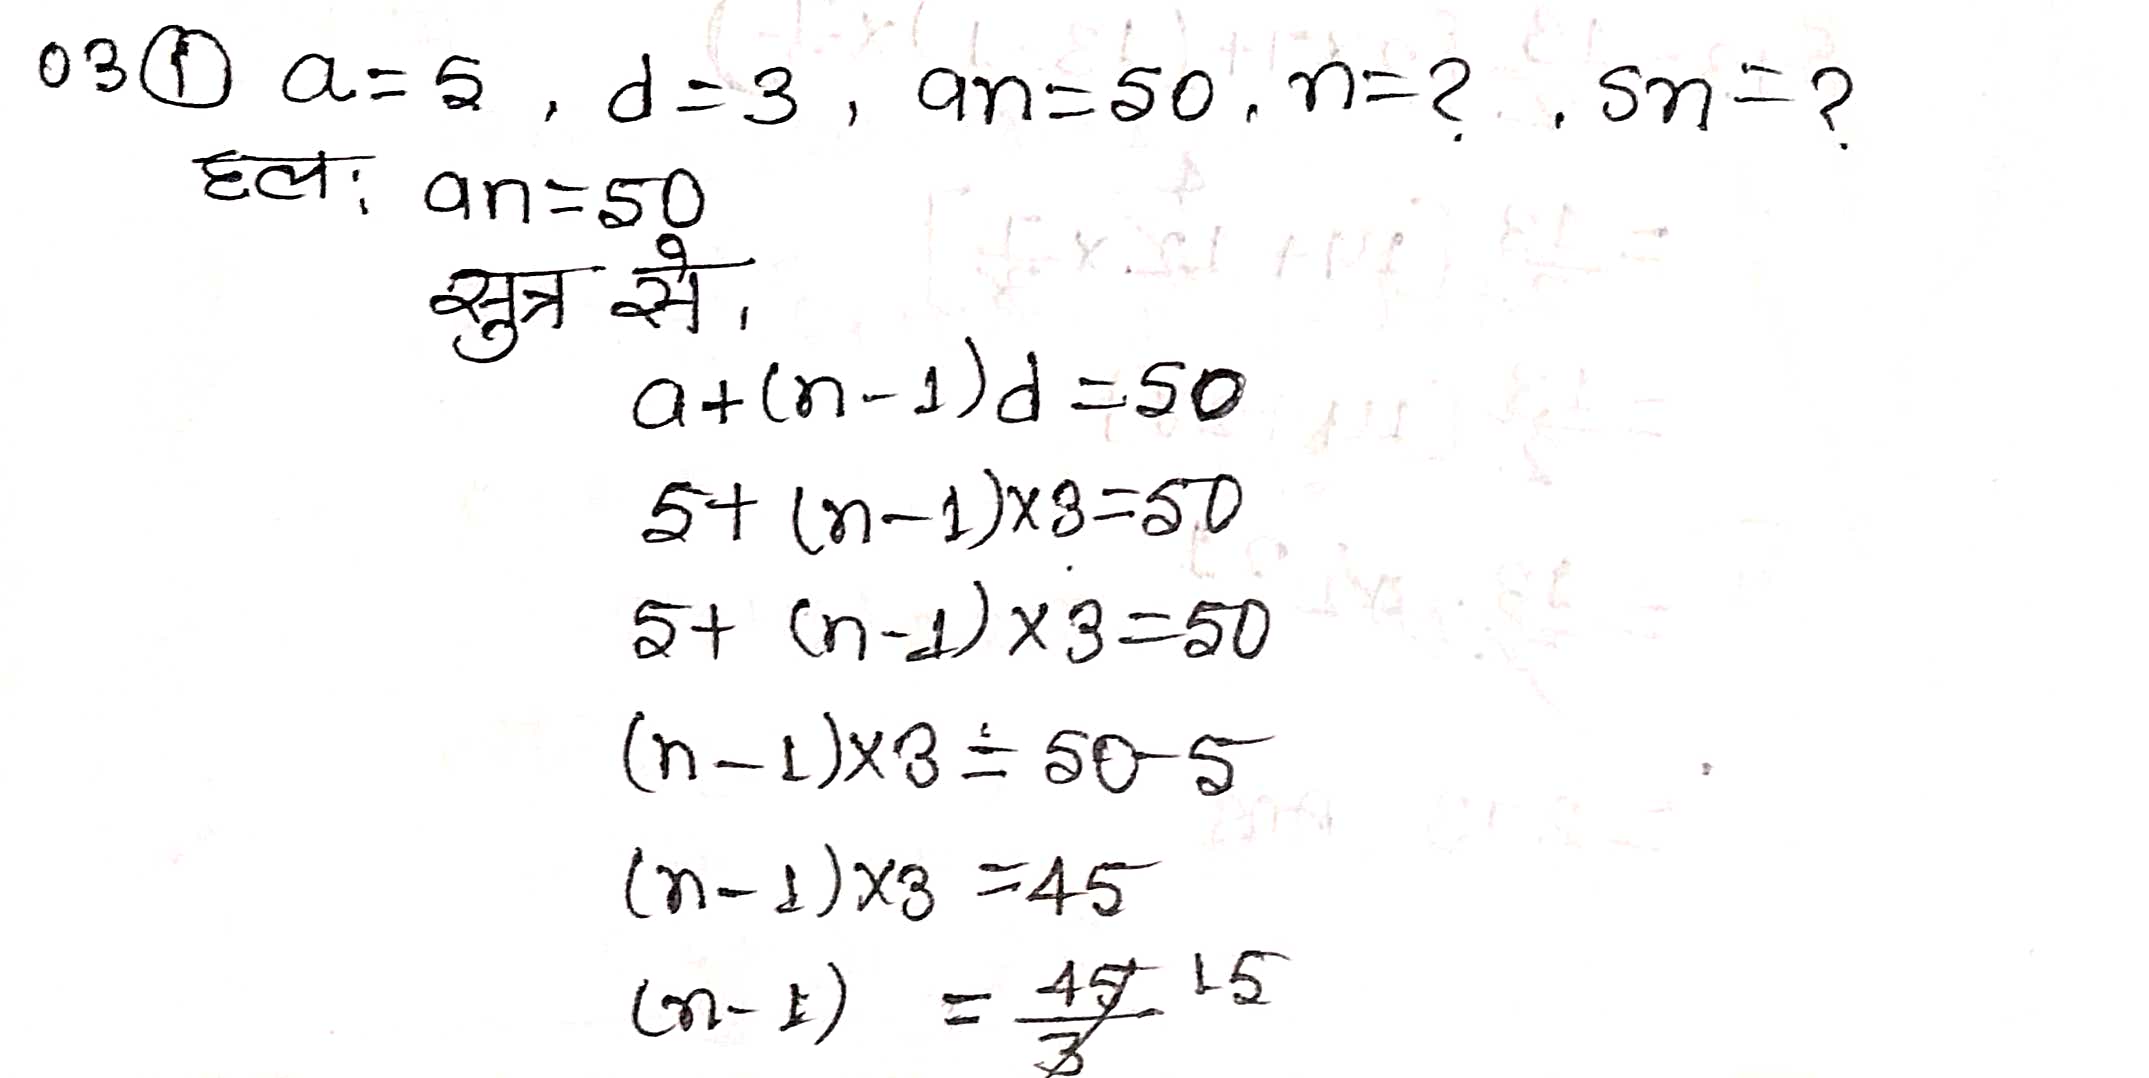 03 (1) a=5, d=3, an=50, n=?, Sn=?
हल: an=50
सुत्र से,
a+(n-1)d=50
5+(n-1)×3=50
5+(n-1)×3=50
(n-1)×3=50-5
(n-1)×3=45
(n-1) = 45/3 15